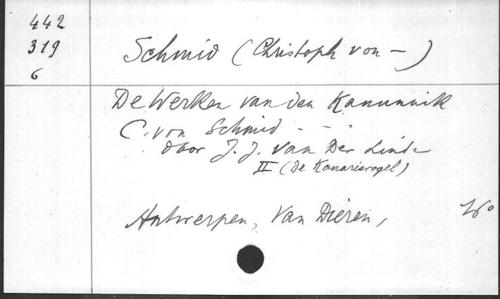 442
319
6
Schmid (Christoph von —)
De Werken van den Kanunnik
C. von Schmid - - -
door J. J. Van Der Linde
II (De Kanarievogel)
Antwerpen, Van Dieren,